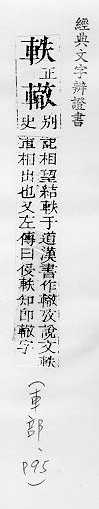 經典文字辨證書
軼正
轍別
史記相望結軼于道漢書作轍攷說文軼
車相出也又左傳曰侵軼知即轍字
(車部、P95)